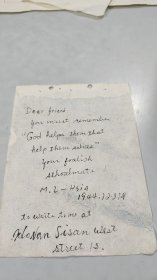 Dear friend.
you must remember
"God helps them that
help them selves"
your foolish
schoolmate
M. L - Hsia
1944.12.314
to write to me at
Honan Sisan West
street 12.